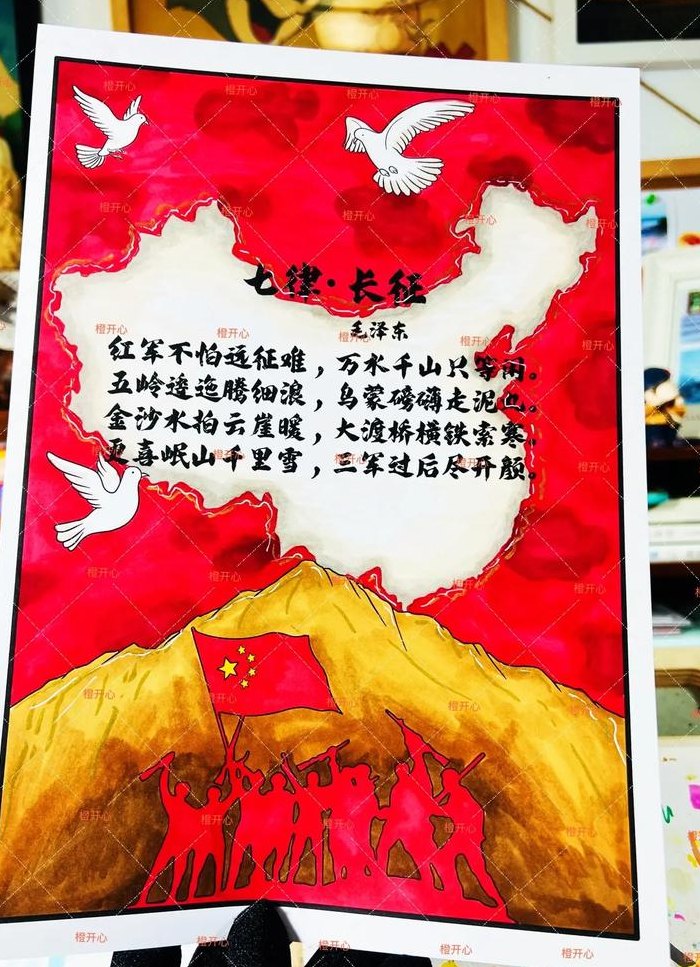 七律·长征
毛泽东
红军不怕远征难，万水千山只等闲。
五岭逶迤腾细浪，乌蒙磅礴走泥丸。
金沙水拍云崖暖，大渡桥横铁索寒。
更喜岷山千里雪，三军过后尽开颜。
橙开心